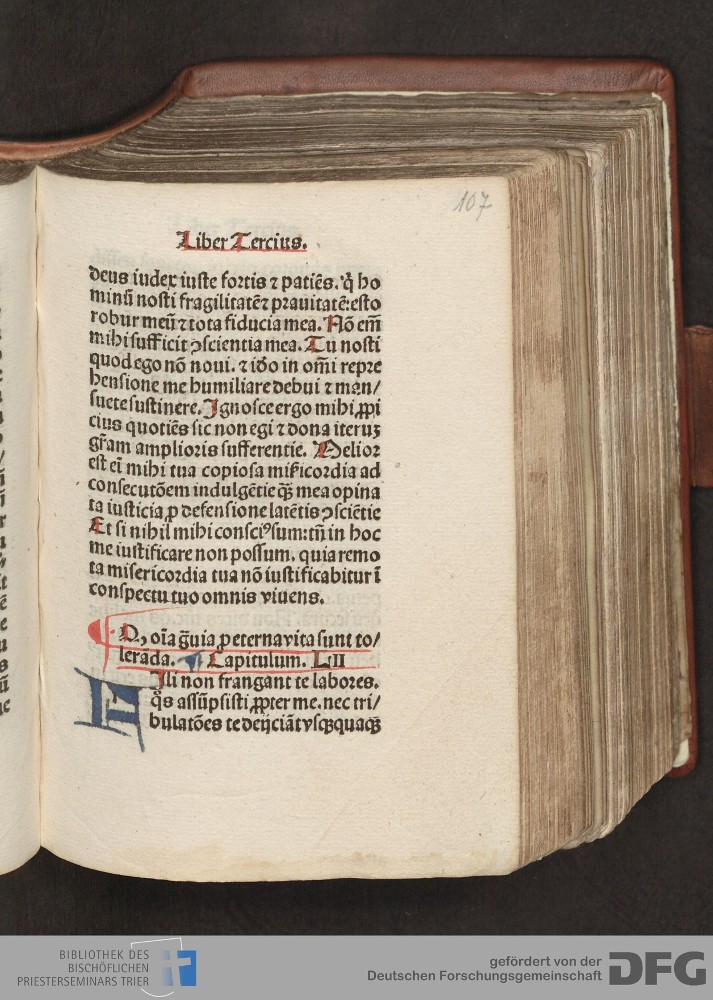 107
Liber Tercius.
deus iudex iuste fortis ⁊ patiēs. q̇ ho
minū nosti fragilitatē⁊ prauitatē:esto
robur meū ⁊ tota fiducia mea. Nō em̄
mihi sufficit ꝯscientia mea. Tu nosti
quod ego nō noui. ⁊ iđo in om̄i repre
hensione me humiliare debui ⁊ man/
suete sustinere. Ignosce ergo mihi ꝓpi
cius quotiēs sic non egi ⁊ dona iteruꝫ
gr̄am amplioris sufferentie. Melior
est em̄ mihi tua copiosa mīcordia ad
consecutōem indulgētie qꝫ̄ mea opina
ta iusticia ꝓ defensione latētis ꝯsciētie
Et si nihil mihi consciꝰ sum: tn̄ in hoc
me iustificare non possum. quia remo
ta misericordia tua nō iustificabitur ī
conspectu tuo omnis viuens.
Q, oīa g̈uia ꝓ eterna vita sunt to/
lerāda. Capitulum. LII
FIli non frangant te labores.
q̄s assūpsisti ꝓpter me. nec tri/
bulatōes te deijciāt vsqꝫquaqꝫ
BIBLIOTHEK DES
BISCHÖFLICHEN
PRIESTERSEMINARS TRIER
gefördert von der
Deutschen Forschungsgemeinschaft
DFG